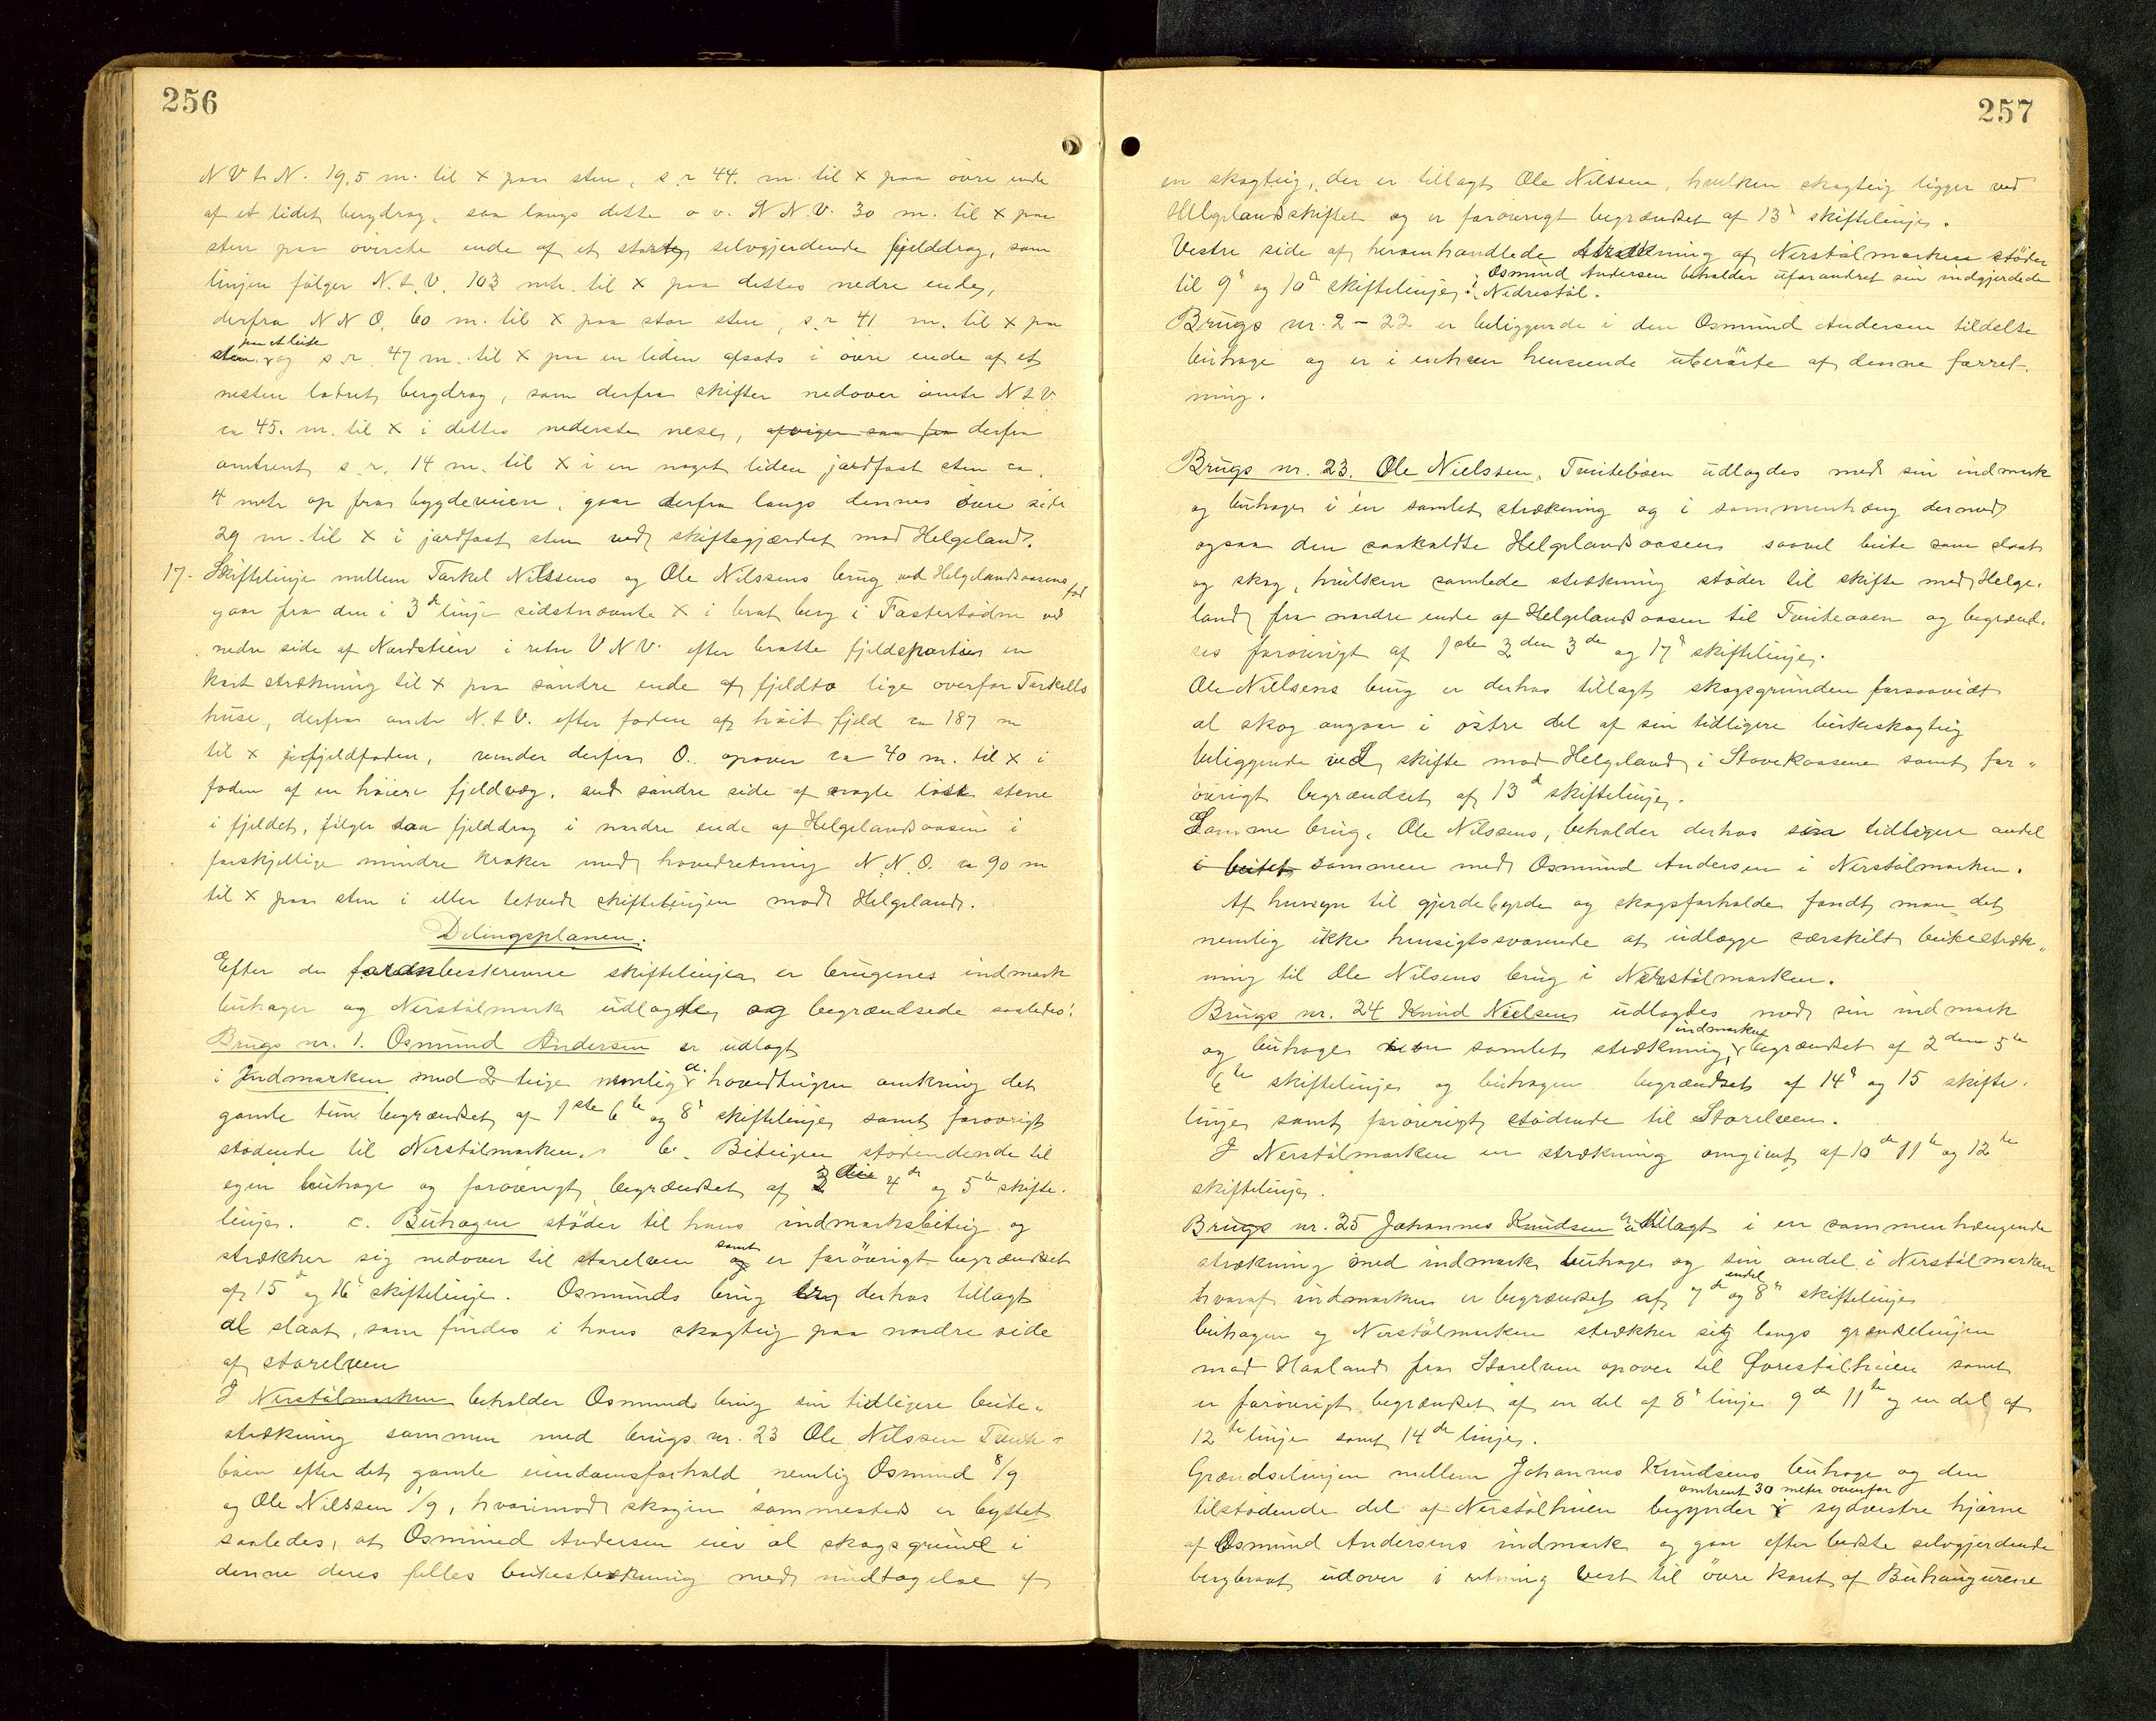 256
N V t. N. 19,5 m. til x paa sten, s. r 44. m. til x paa övre ende
af et lidet bergdrag, saa langs dette o v. N N. V. 30 m. til x paa
sten paa överste ende af et selvgjerdende fjelddrag, som
linjen fölger N. t. V. 103 mtr. til x paa dettes nedre ende,
derfra N N O. 60 m. til x paa stor sten, s. r 41 m. til x paa
sten og s. r. 47 m. til x paa en liden afsats i övre ende af et
nesten lodret bergdrag, som derfra skifter nedover omtr N t V.
ca 45. m. til x i dettes nederste nese, derfra
omtrent s. r. 14 m. til x i en noget liden jordfast sten ca.
4 mtr op fra bygdeveien, gaar derfra langs dennes övre side
29 m. til x i jordfast sten ved skiftegjærdet mod Helgeland.
17. Skiftelinje mellem Tarkel Nilssens og Ole Nilssens brug ved Helgelandsaasens fod
gaar fra den i 3d linje sidstnævnte x i brat berg i ved
nedre side af Nordstien i retn V N V. efter bratte fjeldpartier en
kort strækning til x paa söndre ende af fjeldto lige overfor Tarkells
huse, derfra omtr N. t V. efter foden af höit fjeld ca 187 m
til x i fjeldfoden, vender derfra O. opover ca 40 m. til x i
foden af en höiere fjeldvæg, ved söndre side af nogle löse stene
i fjeldet, fölger saa fjelddrag i nordre ende af Helgelandsaasen i
forskjellige mindre kroker med hovedretning N. N. O. ca 90 m
til x paa sten i eller tetved skiftelinjen mod Helgeland.
Delingsplanen.
Efter de foranbeskrevne skiftelinjer er brugenes indmark
buhager og Nerstölmark udlagte og begrændsede saaledes:
Brugs nr. 1. Osmund Andersen er udlagt
i Indmarken med 2 teige nemlig a. hovedteigen omkring det
gamle tun begrændset af 1ste 6te og 8d skiftelinje samt forövrigt
stödende til Nerstölmarken. b. Biteigen stödendende til
egen buhage og forövrigt begrændset af 4de og 5te skifte-
linje. c. Buhagen stöder til hans indmarksbiteig og
strækker sig nedover til storelven samt er forövrigt begrændset
af 15d og 16d skiftelinje. Osmunds brug er derhos tillagt
al slaat, som findes i hans skogteig paa nordre side
af storelven
I Nerstölmarken beholder Osmunds brug sin tidligere beite-
strækning sammen med brugs nr. 23 Ole Nilssen Tveite-
böen efter det gamle eiendomsforhold nemlig Osmund 8/9
og Ole Nilssen 1/9, hvorimod skogen sammesteds er byttet
saaledes, at Osmund Andersen eier al skogsgrund i
denne deres felles beitestrækning med undtagelse af
257
en skogteig, der er tillagt Ole Nilssen, hvilken skogteig ligger ved
Helgelandskiftet og er forövrigt begrændset af 13d skiftelinje.
Vestre side af heromhandlede strækning af Nerstölmarken stöder
til 9d og 10d skiftelinje. Osmund Andersen beholder uforandret sin indgjerdede
Nedrestöl.
Brugs nr. 2 - 22 er beliggende i den Osmund Andersen tildelte
buhage og er i enhver henseende uberörte af denne forret-
ning.
Brugs nr. 23. Ole Nielssen, Tveiteböen udlagdes med sin indmark
og buhage i én samlet strækning og i sammenhæng dermed
ogsaa den saakaldte Helgelandsaasen saavel beite som slaat
og skog, hvilken samlede strækning stöder til skifte med Helge-
land fra nordre ende af Helgelandsaasen til Tveiteaaen og begrænd-
ses forövrigt af 1ste 2den 3de og 17d skiftelinje.
Ole Nielsens brug er derhos tillagt skogsgrunden forsaavidt
al skog angaar i östre del af sin tidligere birkeskogteig
beliggende ved skifte mod Helgeland i Stovekaasene samt for-
övrigt begrændset af 13d skiftelinje.
Samme brug, Ole Nilssens, beholder derhos sin tidligere andel
i beitet sammen med Osmund Andersen i Nerstölmarken.
Af hensyn til gjerdebyrde og skogsforholde fandt man det
nemlig ikke hensigtssvarende at udlægge særskilt beitestræk-
ning til Ole Nilsens brug i Nerstölmarken.
Brugs nr. 24 Knud Nielsen udlagdes med sin indmark
og buhage i en samlet strækning, indmarken begrændset af 2den 5te
6te skiftelinje og buhagen begrændset af 14d og 15 skifte-
linje samt forövrigt stödende til Storelven.
I Nerstölmarken en strækning omgivet af 10de 11te og 12te
skiftelinje.
Brugs nr. 25 Johannes Knudsen er udlagt i en sammenhængende
strækning med indmark buhage og sin andel i Nerstölmarken
hvoraf indmarken er begrændset af 7de og 8d skiftelinje
buhagen og Nerstölmarken strækker sig langs grændselinjen
mod Haaland fra Storelven opover til Övrestölheien samt
er forövrigt begrændset af en del af 8d linje 9de 11te og en del af
12te linje samt 14de linje.
Grændselinjen mellem Johannes Knudsens buhage og den
tilstödende del af Nerstölheien begynder omtrent 30 meter ovenfor sydvestre hjörne
af Osmund Andersens indmark og gaar efter bedste selvgjerdende
bergbrat udover i retning vest til övre kant af Buhaugurene